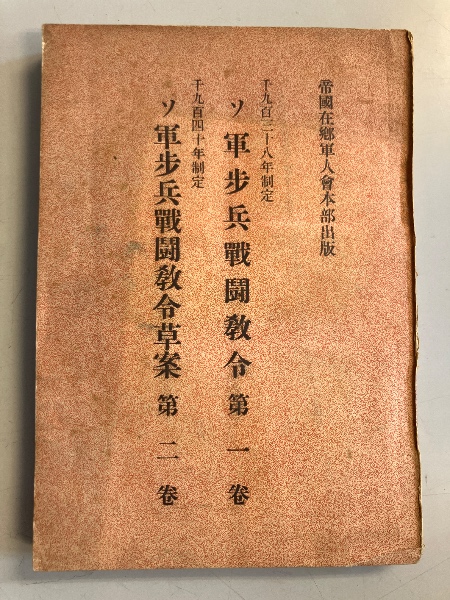 帝國在鄕軍人會本部出版
千九百三十八年制定
ソ軍步兵戰鬪敎令第一卷
千九百四十年制定
ソ軍步兵戰鬪敎令草案第二卷